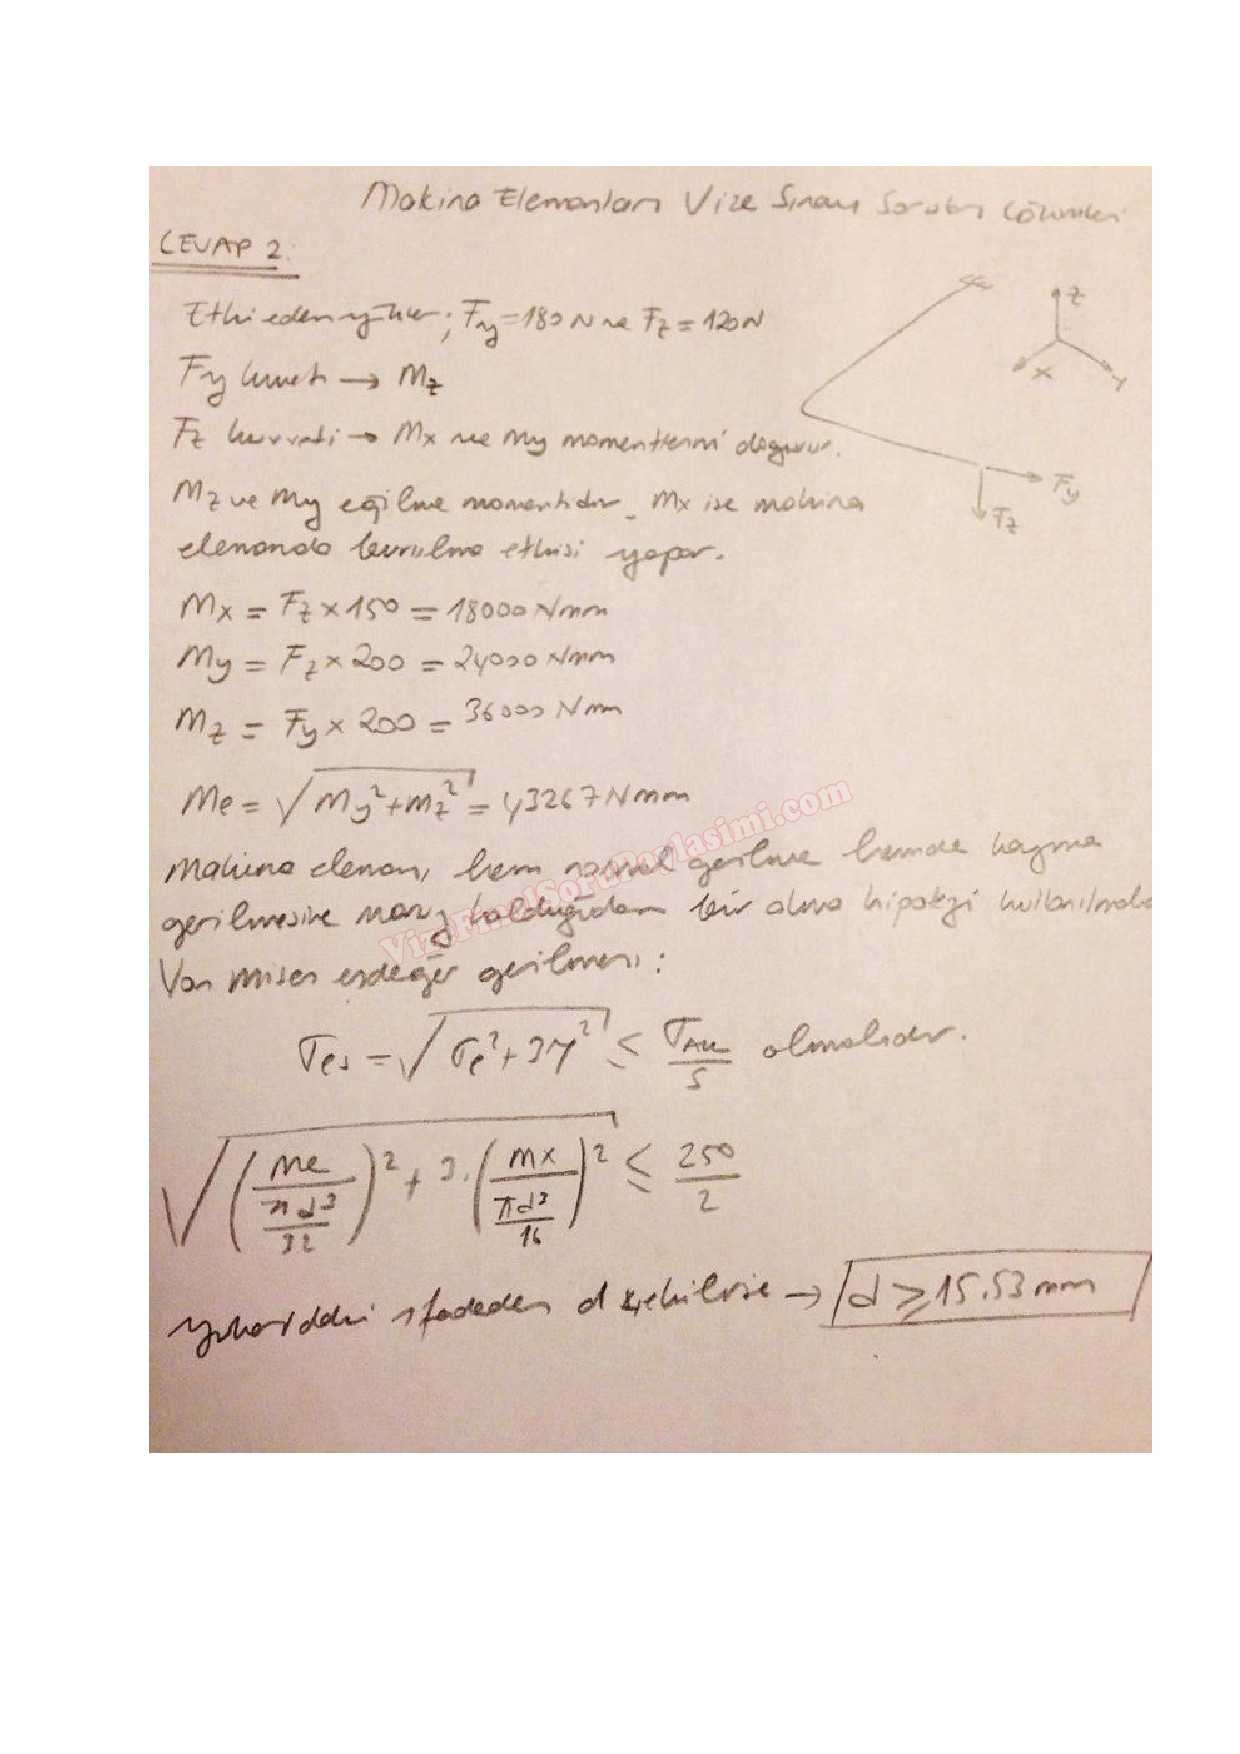 Makina Elemanları Vize Sınavı Soruları Çözümleri
CEVAP 2:
Etki eden yükler; Fy = 180 N ve Fz = 120 N
Fy kuvveti → Mz
Fz kuvveti → Mx ve My momentlerini doğurur.
Mz ve My eğilme momentidir. Mx ise makina
elemanda burulma etkisi yapar.
z
x
y
Fy
Fz
Mx = Fz x 150 = 18000 Nmm
My = Fz x 200 = 24000 Nmm
Mz = Fy x 200 = 36000 Nmm
Me = √(My² + Mz²) = 43267 Nmm
VizeFinalSoruPaylasimi.com
Makina elemanı hem normal gerilme hemde kayma
gerilmesine maruz kaldığıdan bir akma hipotezi kullanılmalı
Von Mises eşdeğer gerilmesi:
σeş = √(σe² + 3τ²) ≤ σAk/S olmalıdır.
√((Me/(πd³/32))² + 3.(Mx/(πd³/16))²) ≤ 250/2
Yukarıdaki ifadeden d çekilirse → d ≥ 15.53 mm